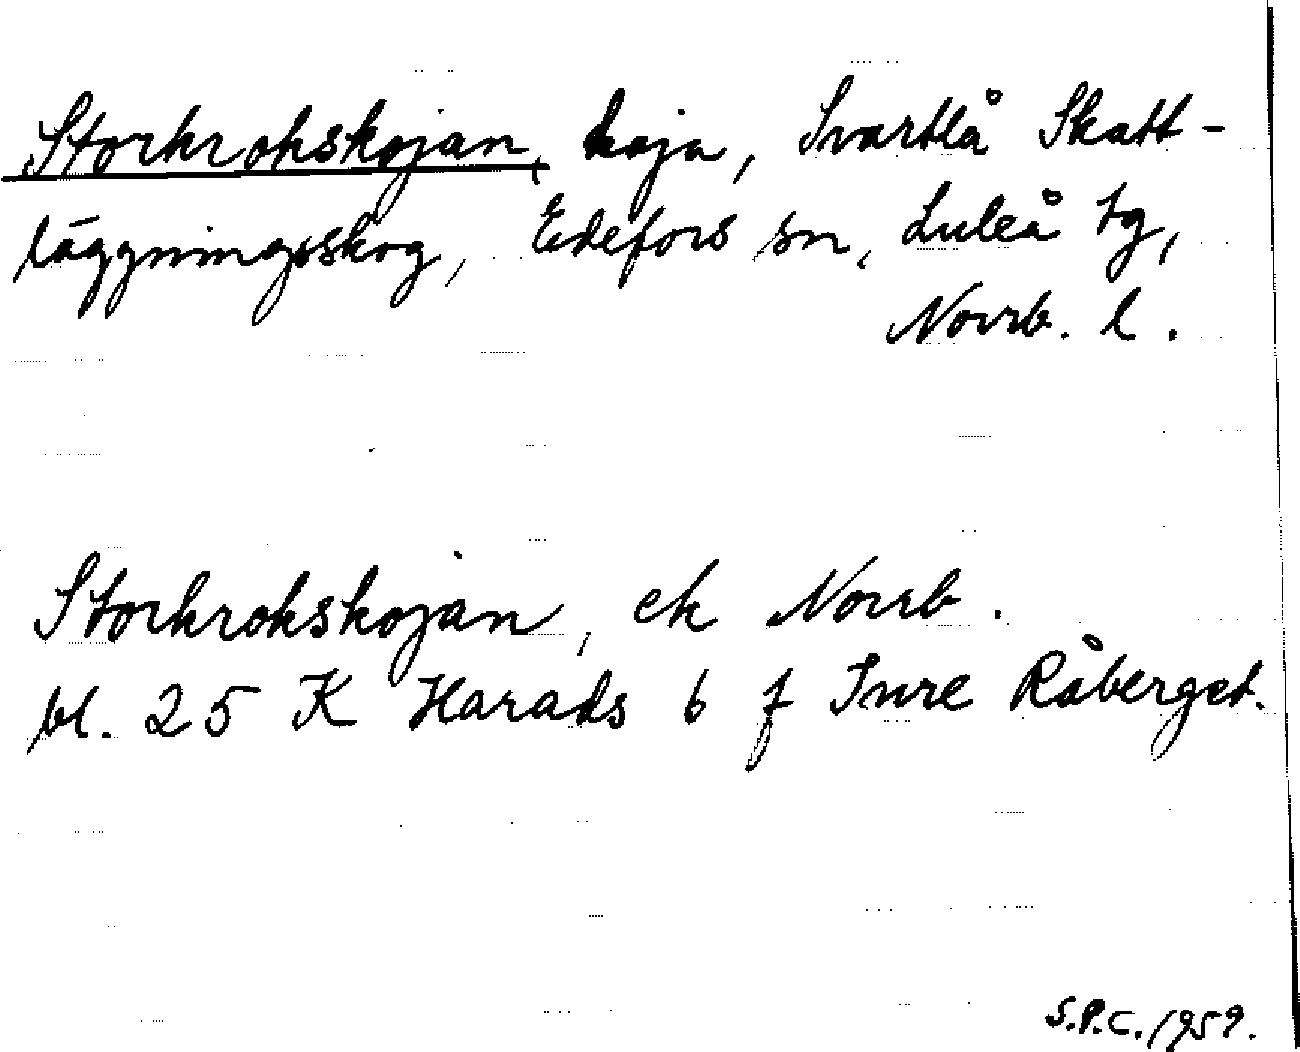 Storkrokskojan, koja, Svartlå Skatt-
läggningsskog, Edefors sn, Luleå tg,
Norrb. l.
Storkrokskojan, ek Norrb.
bl. 25 K Harads 6 f Inre Råberget.
S.P.C. 1959.